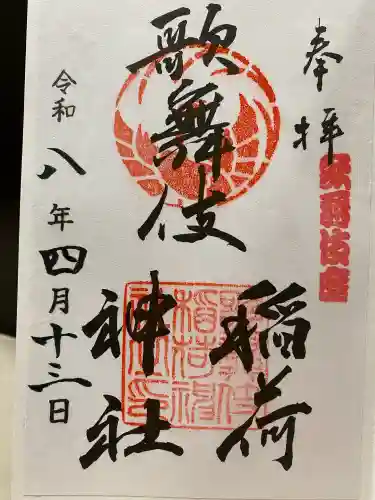 奉拝
歌舞伎座
歌舞伎
稲荷
神社
令和八年四月十三日